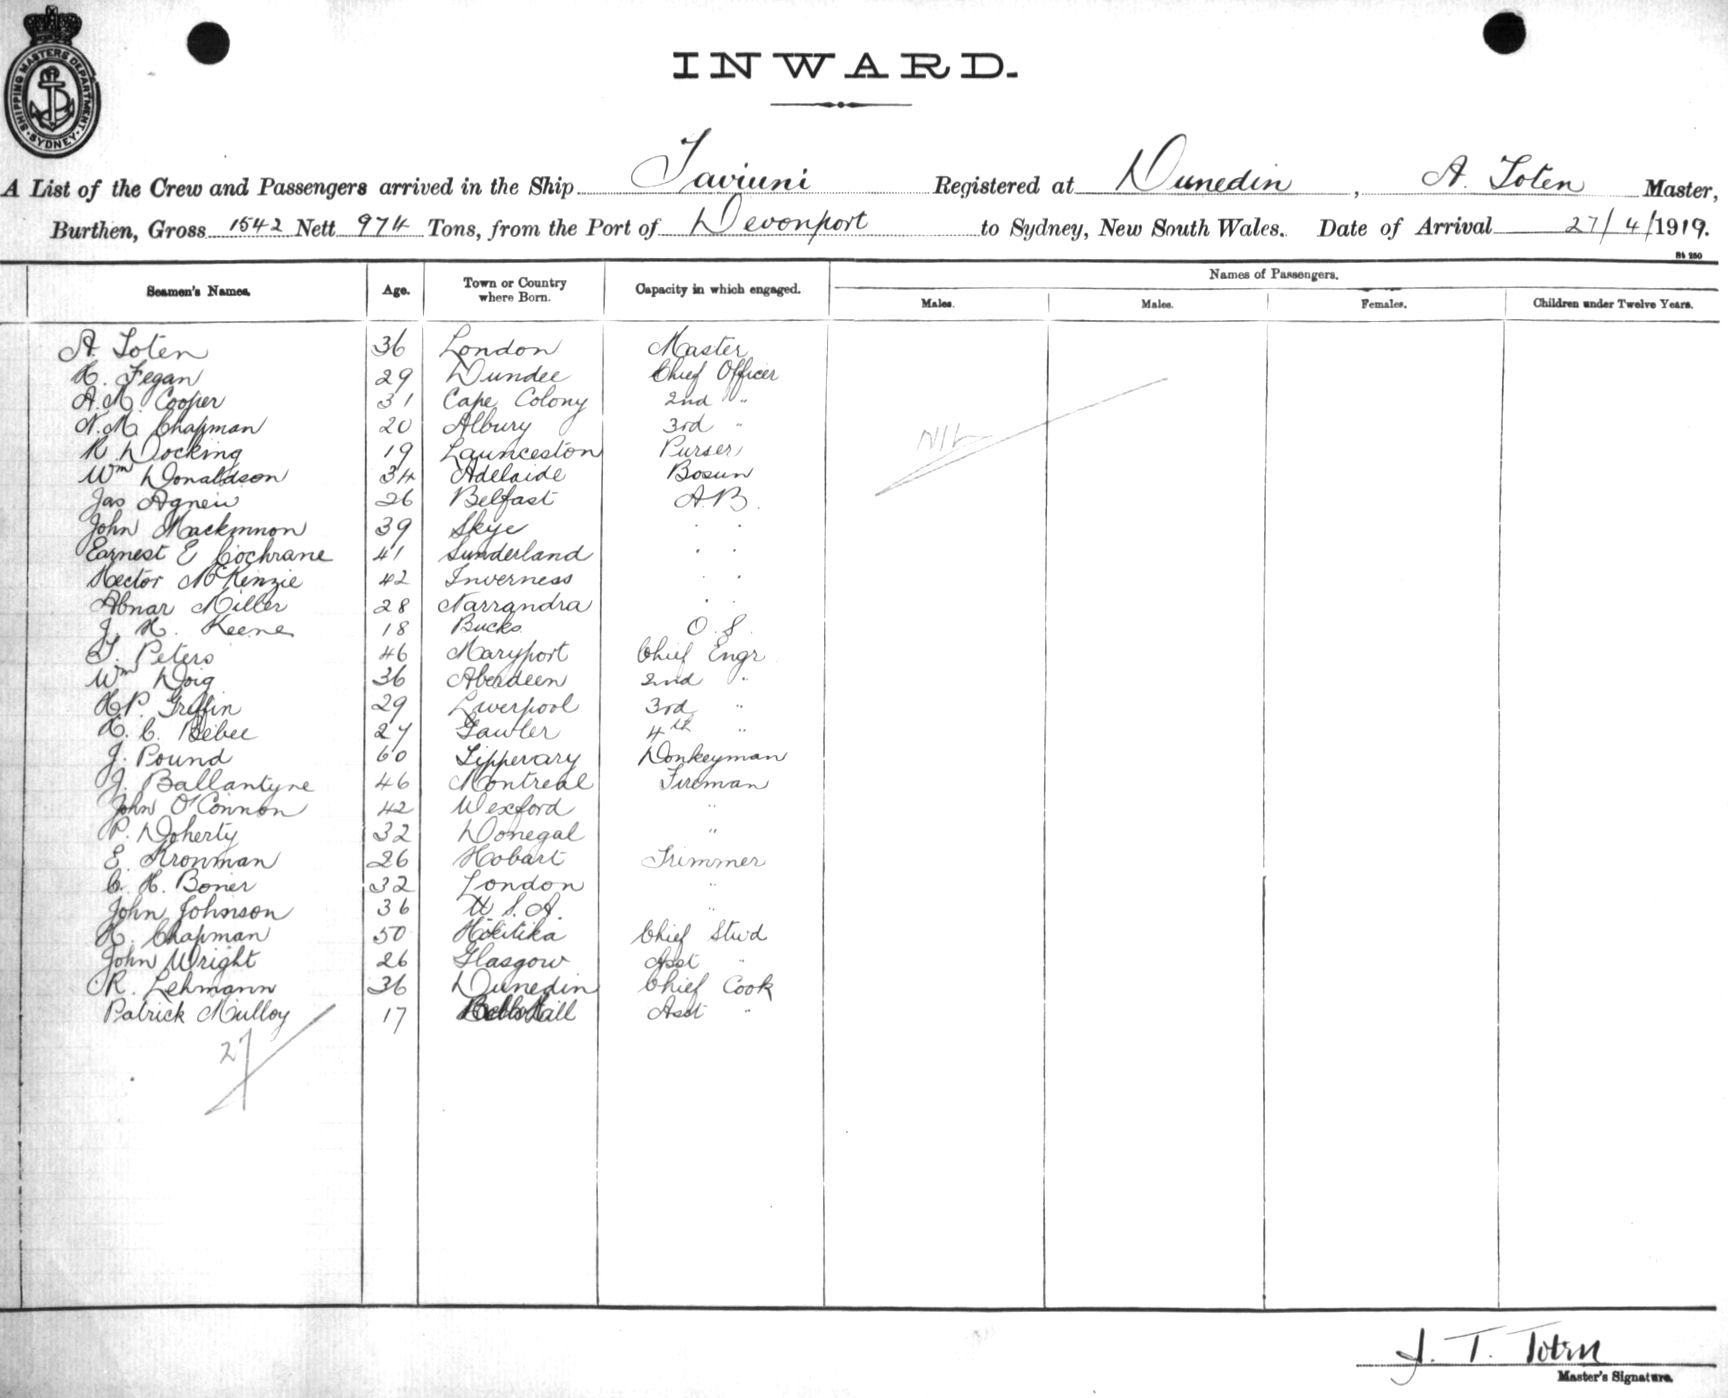 SHIPPING MASTERS DEPARTMENT · SYDNEY ·
INWARD.
A List of the Crew and Passengers arrived in the Ship Taviuni Registered at Dunedin , A. Toten Master,
Burthen, Gross 1542 Nett 974 Tons, from the Port of Devonport to Sydney, New South Wales. Date of Arrival 27/4/1919.
St 250
Seamen's Names. Age. Town or Country where Born. Capacity in which engaged. Names of Passengers.
Males. Males. Females. Children under Twelve Years.
A. Toten 36 London Master
H. Fegan 29 Dundee Chief Officer
A.M. Cooper 31 Cape Colony 2nd "
N.M. Chapman 20 Albury 3rd "
R. Docking 19 Launceston Purser
Wm Donaldson 34 Adelaide Bosun
Jas Agnew 26 Belfast A.B.
John Mackinnon 39 Skye " "
Earnest E Cochrane 41 Sunderland " "
Hector McKenzie 42 Inverness " "
Abnar Miller 28 Narrandra " "
J. H. Keene 18 Bucks O.S.
T. Peters 46 Maryport Chief Engr
Wm Doig 36 Aberdeen 2nd "
H.P. Griffin 29 Liverpool 3rd "
H. C. Bebee 27 Gawler 4th "
J. Pound 60 Tipperary Donkeyman
J. Ballantyne 46 Montreal Fireman
John O'Connon 42 Wexford "
P. Doherty 32 Donegal "
E. Kronman 26 Hobart Trimmer
C. H. Boner 32 London "
John Johnson 36 U.S.A. "
H. Chapman 50 Hokitika Chief Stwd
John Wright 26 Glasgow Asst "
R. Lehmann 36 Dunedin Chief Cook
Patrick Mulloy 17 Asst "
NIL
27
J. T. Toten
Master's Signature.